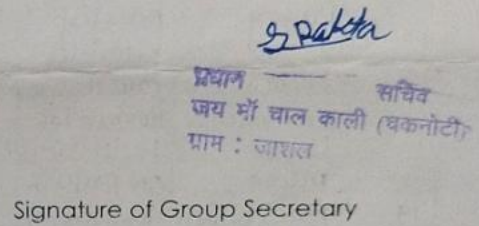 प्रधान —— सचिव
जय माँ चाल काली (चकनोटी)
ग्राम : जाशल
Signature of Group Secretary